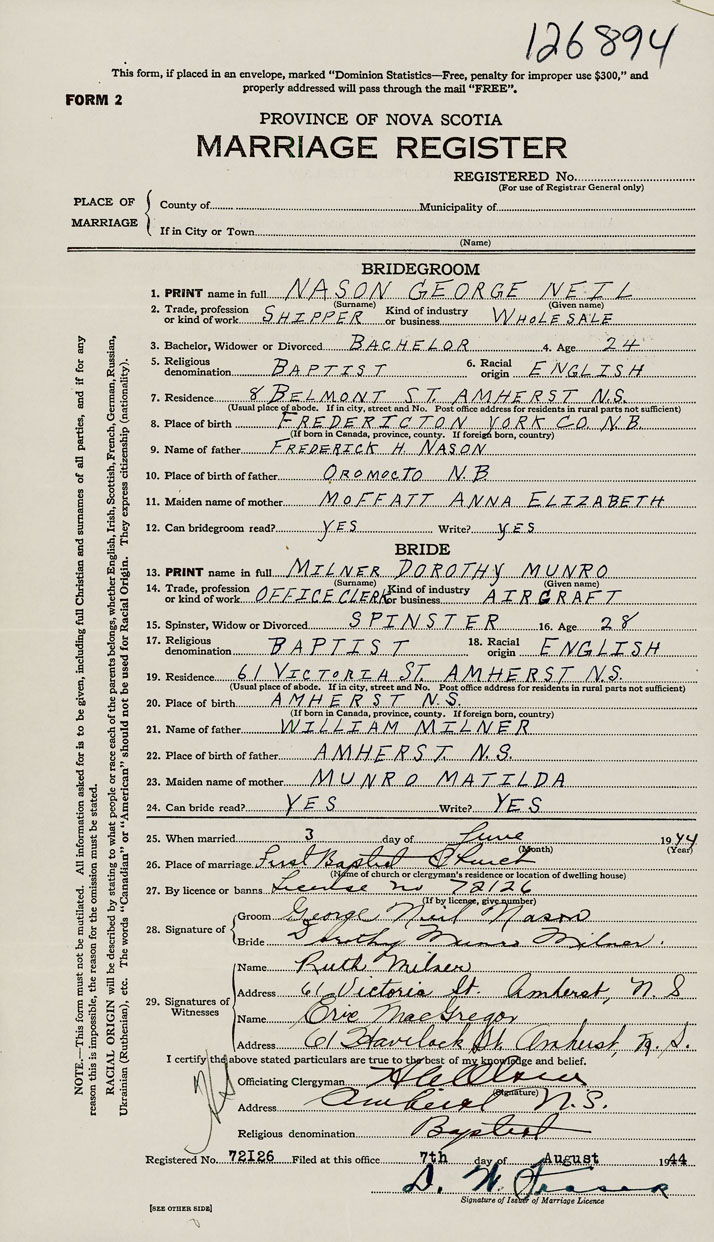 126894
This form, if placed in an envelope, marked "Dominion Statistics—Free, penalty for improper use $300," and
properly addressed will pass through the mail "FREE".
FORM 2
PROVINCE OF NOVA SCOTIA
MARRIAGE REGISTER
REGISTERED No.
(For use of Registrar General only)
PLACE OF MARRIAGE
County of Municipality of
If in City or Town
(Name)
BRIDEGROOM
1. PRINT name in full NASON GEORGE NEIL
(Surname) (Given name)
2. Trade, profession or kind of work SHIPPER Kind of industry or business WHOLESALE
3. Bachelor, Widower or Divorced BACHELOR 4. Age 24
5. Religious denomination BAPTIST 6. Racial origin ENGLISH
7. Residence 8 BELMONT ST. AMHERST N.S.
(Usual place of abode. If in city, street and No. Post office address for residents in rural parts not sufficient)
8. Place of birth FREDERICTON YORK CO. N.B.
(If born in Canada, province, county. If foreign born, country)
9. Name of father FREDERICK H NASON
10. Place of birth of father OROMOCTO N.B.
11. Maiden name of mother MOFFATT ANNA ELIZABETH
12. Can bridegroom read? YES Write? YES
BRIDE
13. PRINT name in full MILNER DOROTHY MUNRO
(Surname) (Given name)
14. Trade, profession or kind of work OFFICE CLERK Kind of industry or business AIRCRAFT
15. Spinster, Widow or Divorced SPINSTER 16. Age 28
17. Religious denomination BAPTIST 18. Racial origin ENGLISH
19. Residence 61 VICTORIA ST. AMHERST N.S.
(Usual place of abode. If in city, street and No. Post office address for residents in rural parts not sufficient)
20. Place of birth AMHERST N.S.
(If born in Canada, province, county. If foreign born, country)
21. Name of father WILLIAM MILNER
22. Place of birth of father AMHERST N.S.
23. Maiden name of mother MUNRO MATILDA
24. Can bride read? YES Write? YES
25. When married 3 day of June 1944
(Month) (Year)
26. Place of marriage First Baptist Church
(Name of church or clergyman's residence or location of dwelling house)
27. By licence or banns License no 72126
(If by licence, give number)
28. Signature of
Groom George Neil Nason
Bride Dorothy Munro Milner.
29. Signatures of Witnesses
Name Ruth Milner
Address 61 Victoria St. Amherst, N. S
Name MacGregor
Address 61 Havilock St. Amherst, N. S.
I certify the above stated particulars are true to the best of my knowledge and belief.
Officiating Clergyman
(Signature)
Address Amherst N.S.
Religious denomination Baptist
Registered No. 72126 Filed at this office 7th day of August 1944
D. W. Fraser
Signature of Issuer of Marriage Licence
[SEE OTHER SIDE]
NOTE.—This form must not be mutilated. All information asked for is to be given, including full Christian and surnames of all parties, and if for any
reason this is impossible, the reason for the omission must be stated.
RACIAL ORIGIN will be described by stating to what people or race each of the parents belongs, whether English, Irish, Scottish, French, German, Russian,
Ukrainian (Ruthenian), etc. The words "Canadian" or "American" should not be used for Racial Origin. They express citizenship (nationality).